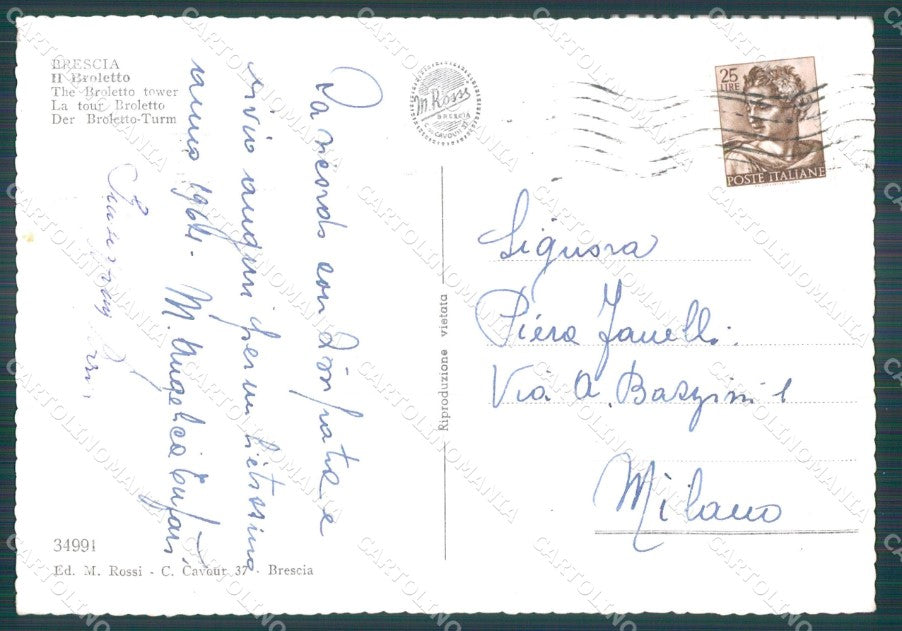 BRESCIA
Il Broletto
The Broletto tower
La tour Broletto
Der Broletto-Turm
M. Rossi
BRESCIA
C. CAVOUR 37
25
LIRE
POSTE ITALIANE
La ricordo con simpatia e
invio auguri per un lietissimo
anno 1964. M. Angelica
Signora
Piera Zanelli
Via A. Bazzini 1
Milano
Riproduzione vietata
34991
Ed. M. Rossi - C. Cavour 37 - Brescia
CARTOLINOMANIA